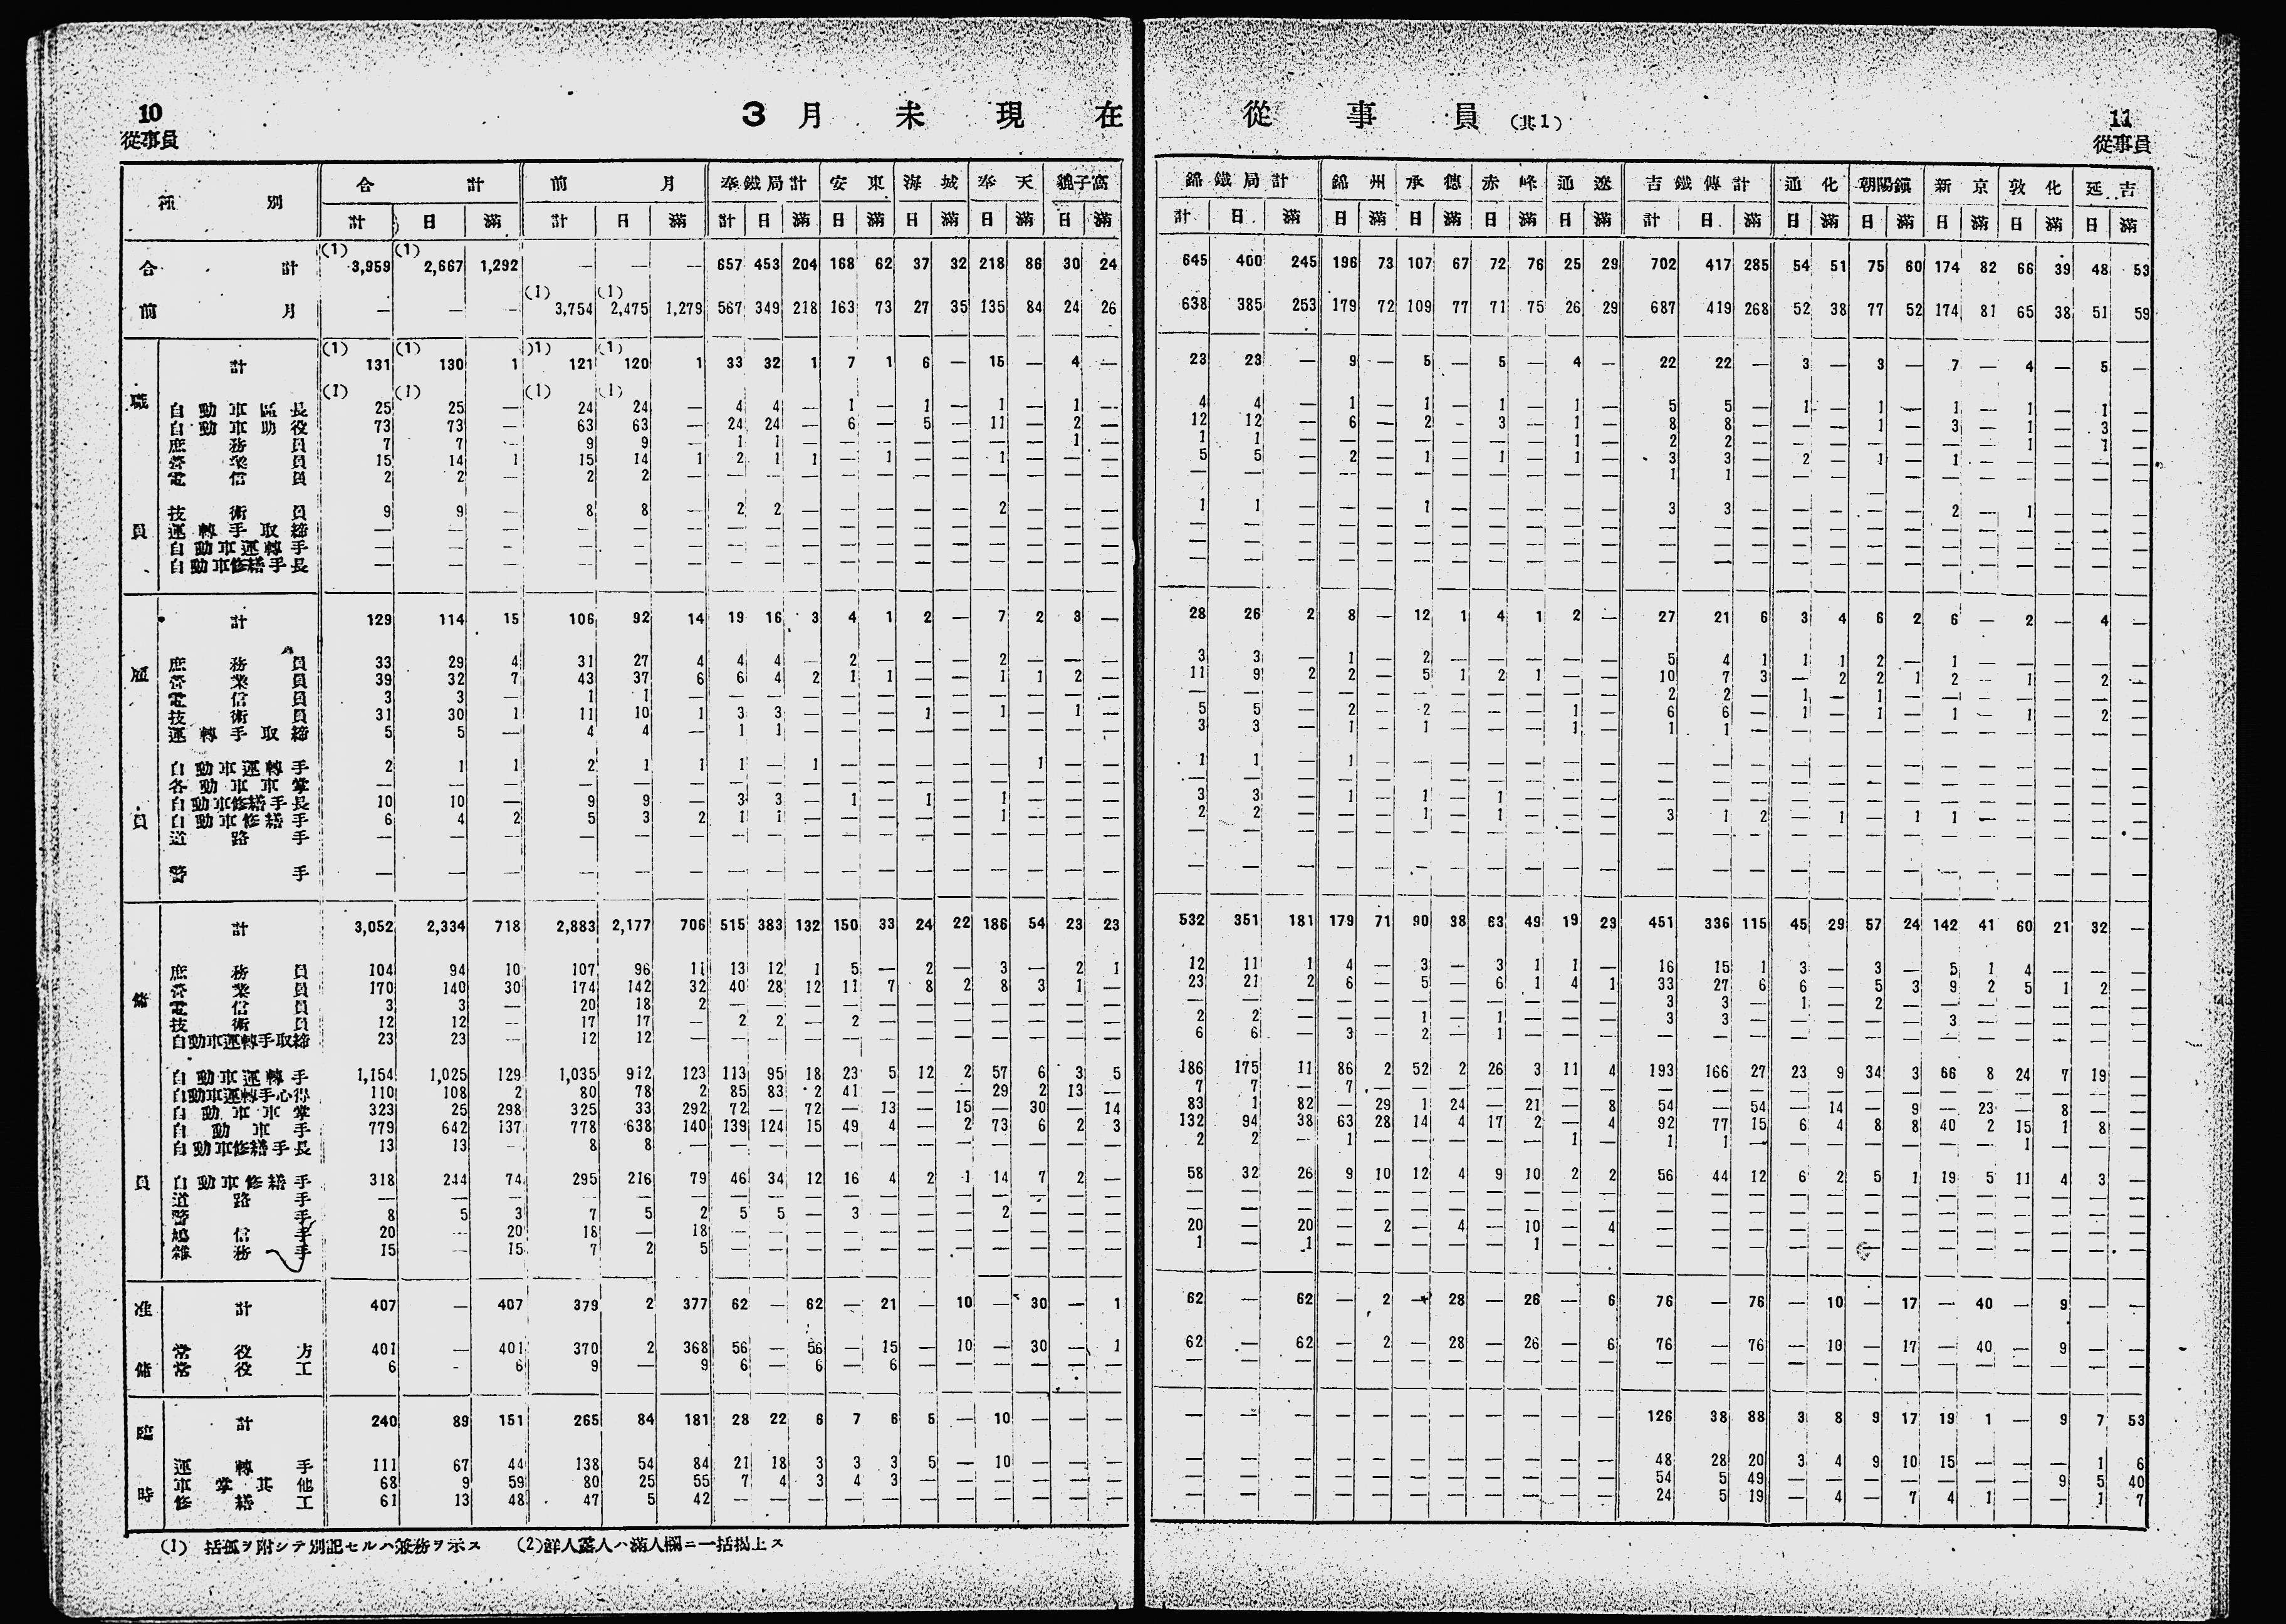 10
從事員
3 月 末 現 在
種 別 合 計 前 月 奉鐵局計 安 東 海 城 奉 天
計 日 滿 計 日 滿 計 日 滿 日 滿 日 滿 日 滿 日 滿
合 計 (1)3,959 (1)2,667 1,292 — — — 657 453 204 168 62 37 32 218 86 30 24
前 月 — — — (1)3,754 (1)2,475 1,279 567 349 218 163 73 27 35 135 84 24 26
職員
計 (1)131 (1)130 1 (1)121 (1)120 1 33 32 1 7 1 6 — 15 — 4 —
自動車區長 (1)25 (1)25 — (1)24 (1)24 — 4 4 — 1 — 1 — 1 — 1 —
自動車助役 73 73 — 63 63 — 24 24 — 6 — 5 — 11 — 2 —
庶務員 7 7 — 9 9 — 1 1 — — — — — — — 1 —
營業員 15 14 1 15 14 1 2 1 1 — 1 — — 1 — — —
電信員 2 2 — 2 2 — — — — — — — — — — — —
技術員 9 9 — 8 8 — 2 2 — — — — — 2 — — —
運轉手取締 — — — — — — — — — — — — — — — — —
自動車運轉手 — — — — — — — — — — — — — — — — —
自動車修繕手長 — — — — — — — — — — — — — — — — —
雇員
計 129 114 15 106 92 14 19 16 3 4 1 2 — 7 2 3 —
庶務員 33 29 4 31 27 4 4 4 — 2 — — — 2 — — —
營業員 39 32 7 43 37 6 6 4 2 1 1 — — 1 1 2 —
電信員 3 3 — 1 1 — — — — — — — — — — — —
技術員 31 30 1 11 10 1 3 3 — — — 1 — 1 — 1 —
運轉手取締 5 5 — 4 4 — 1 1 — — — — — — — — —
自動車運轉手 2 1 1 2 1 1 1 — 1 — — — — — 1 — —
各動車車掌 — — — — — — — — — — — — — — — — —
自動車修繕手長 10 10 — 9 9 — 3 3 — 1 — 1 — 1 — — —
自動車修繕手 6 4 2 5 3 2 1 1 — — — — — 1 — — —
道路手 — — — — — — — — — — — — — — — — —
警手 — — — — — — — — — — — — — — — — —
傭員
計 3,052 2,334 718 2,883 2,177 706 515 383 132 150 33 24 22 186 54 23 23
庶務員 104 94 10 107 96 11 13 12 1 5 — 2 — 3 — 2 1
營業員 170 140 30 174 142 32 40 28 12 11 7 8 2 8 3 1 —
電信員 3 3 — 20 18 2 — — — — — — — — — — —
技術員 12 12 — 17 17 — 2 2 — 2 — — — — — — —
自動車運轉手取締 23 23 — 12 12 — — — — — — — — — — — —
自動車運轉手 1,154 1,025 129 1,035 912 123 113 95 18 23 5 12 2 57 6 3 5
自動車運轉手心得 110 108 2 80 78 2 85 83 2 41 — — — 29 2 13 —
自動車車掌 323 25 298 325 33 292 72 — 72 — 13 — 15 — 30 — 14
自動車手 779 642 137 778 638 140 139 124 15 49 4 — 2 73 6 2 3
自動車修繕手長 13 13 — 8 8 — — — — — — — — — — — —
自動車修繕手 318 244 74 295 216 79 46 34 12 16 4 2 1 14 7 2 —
道路手 — — — — — — — — — — — — — — — — —
警手 8 5 3 7 5 2 5 5 — 3 — — — 2 — — —
鳩信手 20 — 20 18 — 18 — — — — — — — — — — —
雜務手 15 — 15 7 2 5 — — — — — — — — — — —
准傭
計 407 — 407 379 2 377 62 — 62 — 21 — 10 — 30 — 1
常役方 401 — 401 370 2 368 56 — 56 — 15 — 10 — 30 — 1
常役工 6 — 6 9 — 9 6 — 6 — 6 — — — — — —
臨時
計 240 89 151 265 84 181 28 22 6 7 6 5 — 10 — — —
運轉手 111 67 44 138 54 84 21 18 3 3 3 5 — 10 — — —
車掌其他 68 9 59 80 25 55 7 4 3 4 3 — — — — — —
修繕工 61 13 48 47 5 42 — — — — — — — — — — —
(1) 括弧ヲ附シテ別記セルハ兼務ヲ示ス (2)鮮人露人ハ滿人欄ニ一括揭上ス
從 事 員 (其1)
11
從事員
錦鐵局計 錦 州 承 德 赤 峰 通 遼 吉鐵傳計 通 化 朝陽鎭 新 京 敦 化 延 吉
計 日 滿 日 滿 日 滿 日 滿 日 滿 計 日 滿 日 滿 日 滿 日 滿 日 滿 日 滿
645 400 245 196 73 107 67 72 76 25 29 702 417 285 54 51 75 60 174 82 66 39 48 53
638 385 253 179 72 109 77 71 75 26 29 687 419 268 52 38 77 52 174 81 65 38 51 59
23 23 — 9 — 5 — 5 — 4 — 22 22 — 3 — 3 — 7 — 4 — 5 —
4 4 — 1 — 1 — 1 — 1 — 5 5 — 1 — 1 — 1 — 1 — 1 —
12 12 — 6 — 2 — 3 — 1 — 8 8 — — — 1 — 3 — 1 — 3 —
1 1 — — — — — — — 1 — 2 2 — — — — — — — 1 — 1 —
5 5 — 2 — 1 — 1 — 1 — 3 3 — 2 — 1 — 1 — — — — —
— — — — — — — — — — — 1 1 — — — — — — — — — — —
1 1 — — — 1 — — — — — 3 3 — — — — — 2 — 1 — — —
— — — — — — — — — — — — — — — — — — — — — — — —
— — — — — — — — — — — — — — — — — — — — — — — —
— — — — — — — — — — — — — — — — — — — — — — — —
28 26 2 8 — 12 1 4 1 2 — 27 21 6 3 4 6 2 6 — 2 — 4 —
3 3 — 1 — 2 — — — — — 5 4 1 1 1 2 — 1 — — — — —
11 9 2 2 — 5 1 2 1 — — 10 7 3 — 2 2 1 2 — 1 — 2 —
— — — — — — — — — — — 2 2 — 1 — 1 — — — — — — —
5 5 — 2 — 2 — — — 1 — 6 6 — 1 — 1 — 1 — 1 — 2 —
3 3 — 1 — 1 — — — 1 — 1 1 — — — — — — — — — — —
1 1 — 1 — — — — — — — — — — — — — — — — — — — —
— — — — — — — — — — — — — — — — — — — — — — — —
3 3 — 1 — 1 — 1 — — — — — — — — — — — — — — — —
2 2 — — — 1 — 1 — — — 3 1 2 — 1 — 1 1 — — — — —
— — — — — — — — — — — — — — — — — — — — — — — —
— — — — — — — — — — — — — — — — — — — — — — — —
532 351 181 179 71 90 38 63 49 19 23 451 336 115 45 29 57 24 142 41 60 21 32 —
12 11 1 4 — 3 — 3 1 1 — 16 15 1 3 — 3 — 5 1 4 — — —
23 21 2 6 — 5 — 6 1 4 1 33 27 6 6 — 5 3 9 2 5 1 2 —
— — — — — — — — — — — 3 3 — 1 — 2 — — — — — — —
2 2 — — — 1 — 1 — — — 3 3 — — — — — 3 — — — — —
6 6 — 3 — 2 — 1 — — — — — — — — — — — — — — — —
186 175 11 86 2 52 2 26 3 11 4 193 166 27 23 9 34 3 66 8 24 7 19 —
7 7 — 7 — — — — — — — — — — — — — — — — — — — —
83 1 82 — 29 1 24 — 21 — 8 54 — 54 — 14 — 9 — 23 — 8 — —
132 94 38 63 28 14 4 17 2 — 4 92 77 15 6 4 8 8 40 2 15 1 8 —
2 2 — 1 — — — — — 1 — 1 1 — — — — — — — 1 — — —
58 32 26 9 10 12 4 9 10 2 2 56 44 12 6 2 5 1 19 5 11 4 3 —
— — — — — — — — — — — — — — — — — — — — — — — —
— — — — — — — — — — — — — — — — — — — — — — — —
20 — 20 — 2 — 4 — 10 — 4 — — — — — — — — — — — — —
1 — 1 — — — — — 1 — — — — — — — — — — — — — — —
62 — 62 — 2 — 28 — 26 — 6 76 — 76 — 10 — 17 — 40 — 9 — —
62 — 62 — 2 — 28 — 26 — 6 76 — 76 — 10 — 17 — 40 — 9 — —
— — — — — — — — — — — — — — — — — — — — — — — —
— — — — — — — — — — — 126 38 88 3 8 9 17 19 1 — 9 7 53
— — — — — — — — — — — 48 28 20 3 4 9 10 15 — — — 1 6
— — — — — — — — — — — 54 5 49 — — — — — — — 9 5 40
— — — — — — — — — — — 24 5 19 — 4 — 7 4 1 — — 1 7